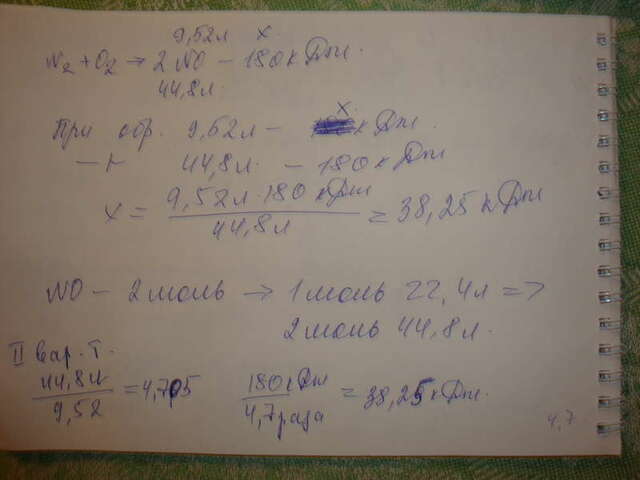 9,52л x
N₂ + O₂ → 2 NO - 180 кДж.
44,8л.
При обр. 9,52л - x кДж.
-"- 44,8л. - 180 кДж
x = 9,52л · 180 кДж / 44,8л = 38,25 кДж
NO - 2 моль → 1 моль 22,4л =>
2 моль 44,8л.
II вар. Т.
44,8л / 9,52 = 4,705 180 кДж / 4,7 раза = 38,25 кДж.
4,7